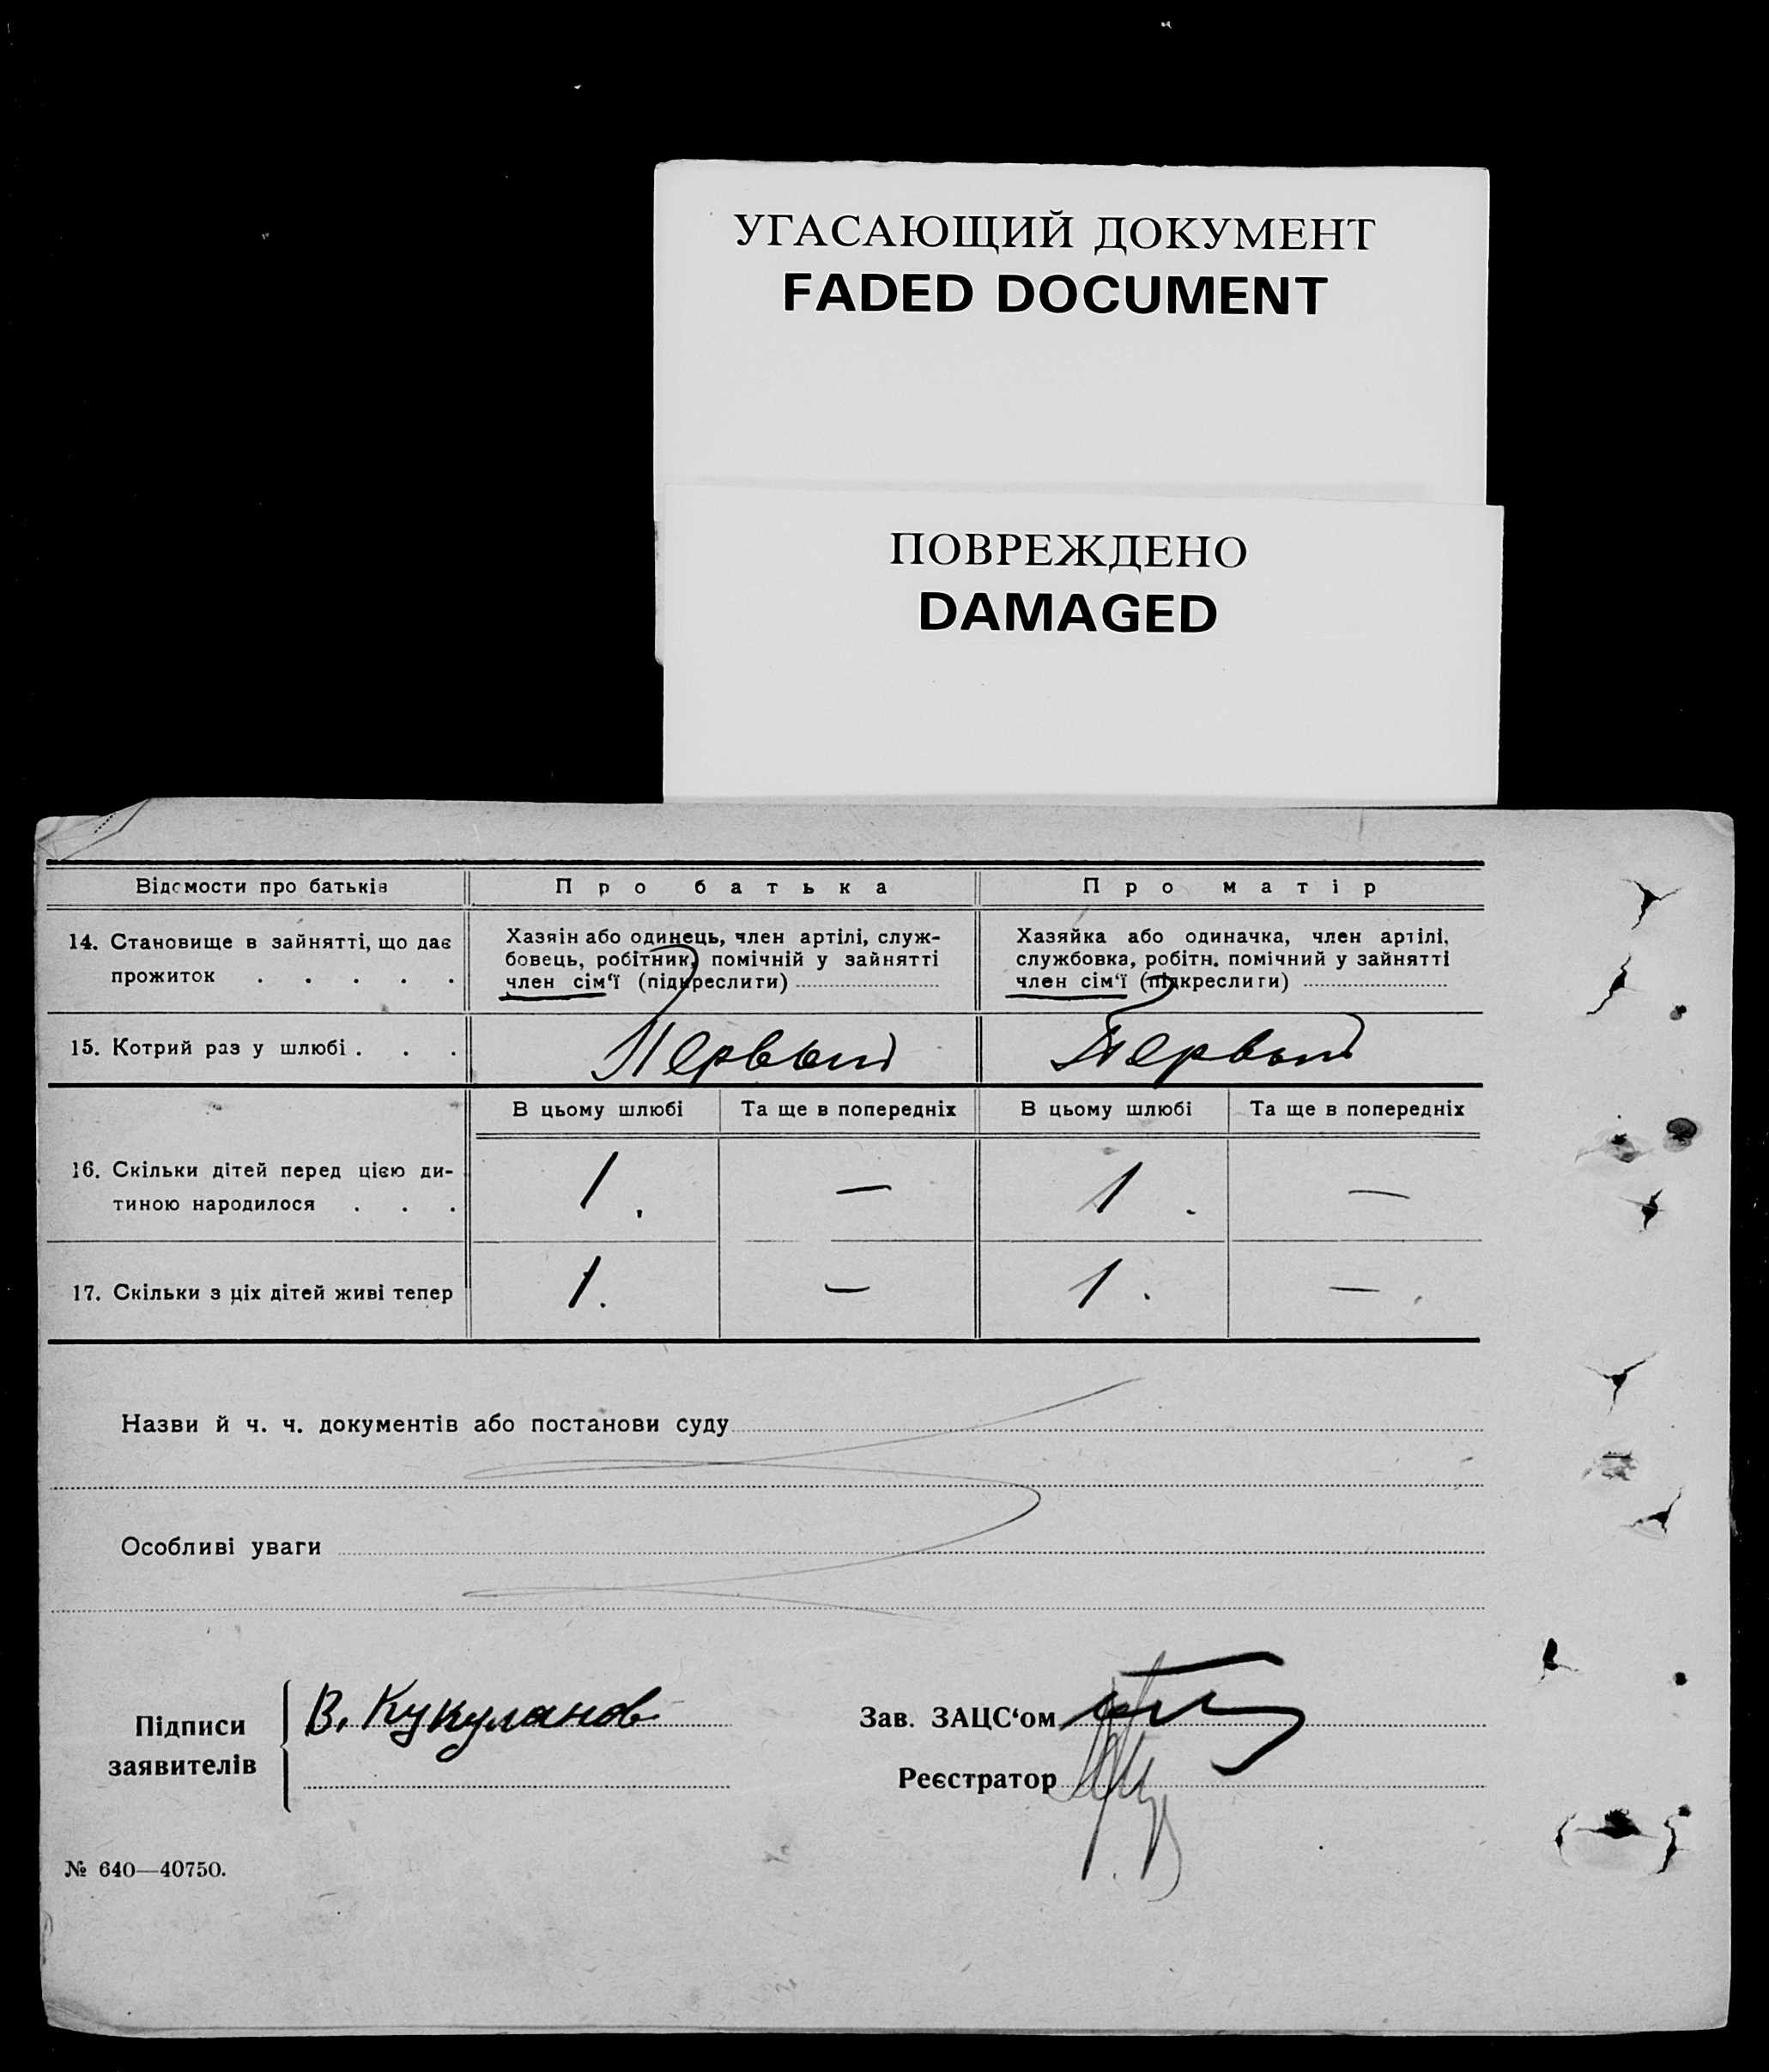 УГАСАЮЩИЙ ДОКУМЕНТ
FADED DOCUMENT
ПОВРЕЖДЕНО
DAMAGED
Відомости про батьків Про батька Про матір
14. Становище в зайнятті, що дає
прожиток . . . . .
Хазяін або одинець, член артілі, служ-
бовець, робітник, помічній у зайнятті
член сім‘ї (підкреслити)
Хазяйка або одиначка, член артілі,
службовка, робітн. помічний у зайнятті
член сім‘ї (підкреслити)
15. Котрий раз у шлюбі . . . Первый Первый
В цьому шлюбі Та ще в попередніх В цьому шлюбі Та ще в попередніх
16. Скільки дітей перед цією ди-
тиною народилося . . . 1. — 1. —
17. Скільки з ціх дітей живі тепер 1. — 1. —
Назви й ч. ч. документів або постанови суду
Особливі уваги
Підписи
заявителів
В. Кукуланов
Зав. ЗАЦС‘ом
Реєстратор
№ 640—40750.